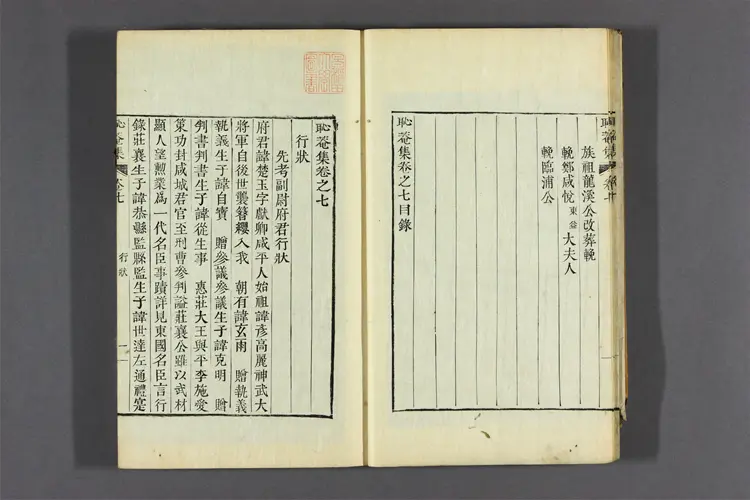 恥菴集 卷六
族祖龍溪公改葬輓
輓鄭咸悅東益大夫人
輓臨浦公
恥菴集卷之七目錄
恥菴集卷之七
行狀
先考副尉府君行狀
府君諱楚玉字獻卿咸平人始祖諱彥高麗神武大
將軍自後世襲簪纓入我 朝有諱玄雨 贈執義
執義生子諱自寶 贈參議參議生子諱克明 贈
判書判書生子諱從生事 惠莊大王與平李施愛
策功封咸城君官至刑曹參判謚莊襄公雖以武材
顯人望勲業爲一代名臣事蹟詳見東國名臣言行
錄莊襄生子諱恭縣監縣監生子諱世達左通禮寔
恥菴集 卷七 行狀 一